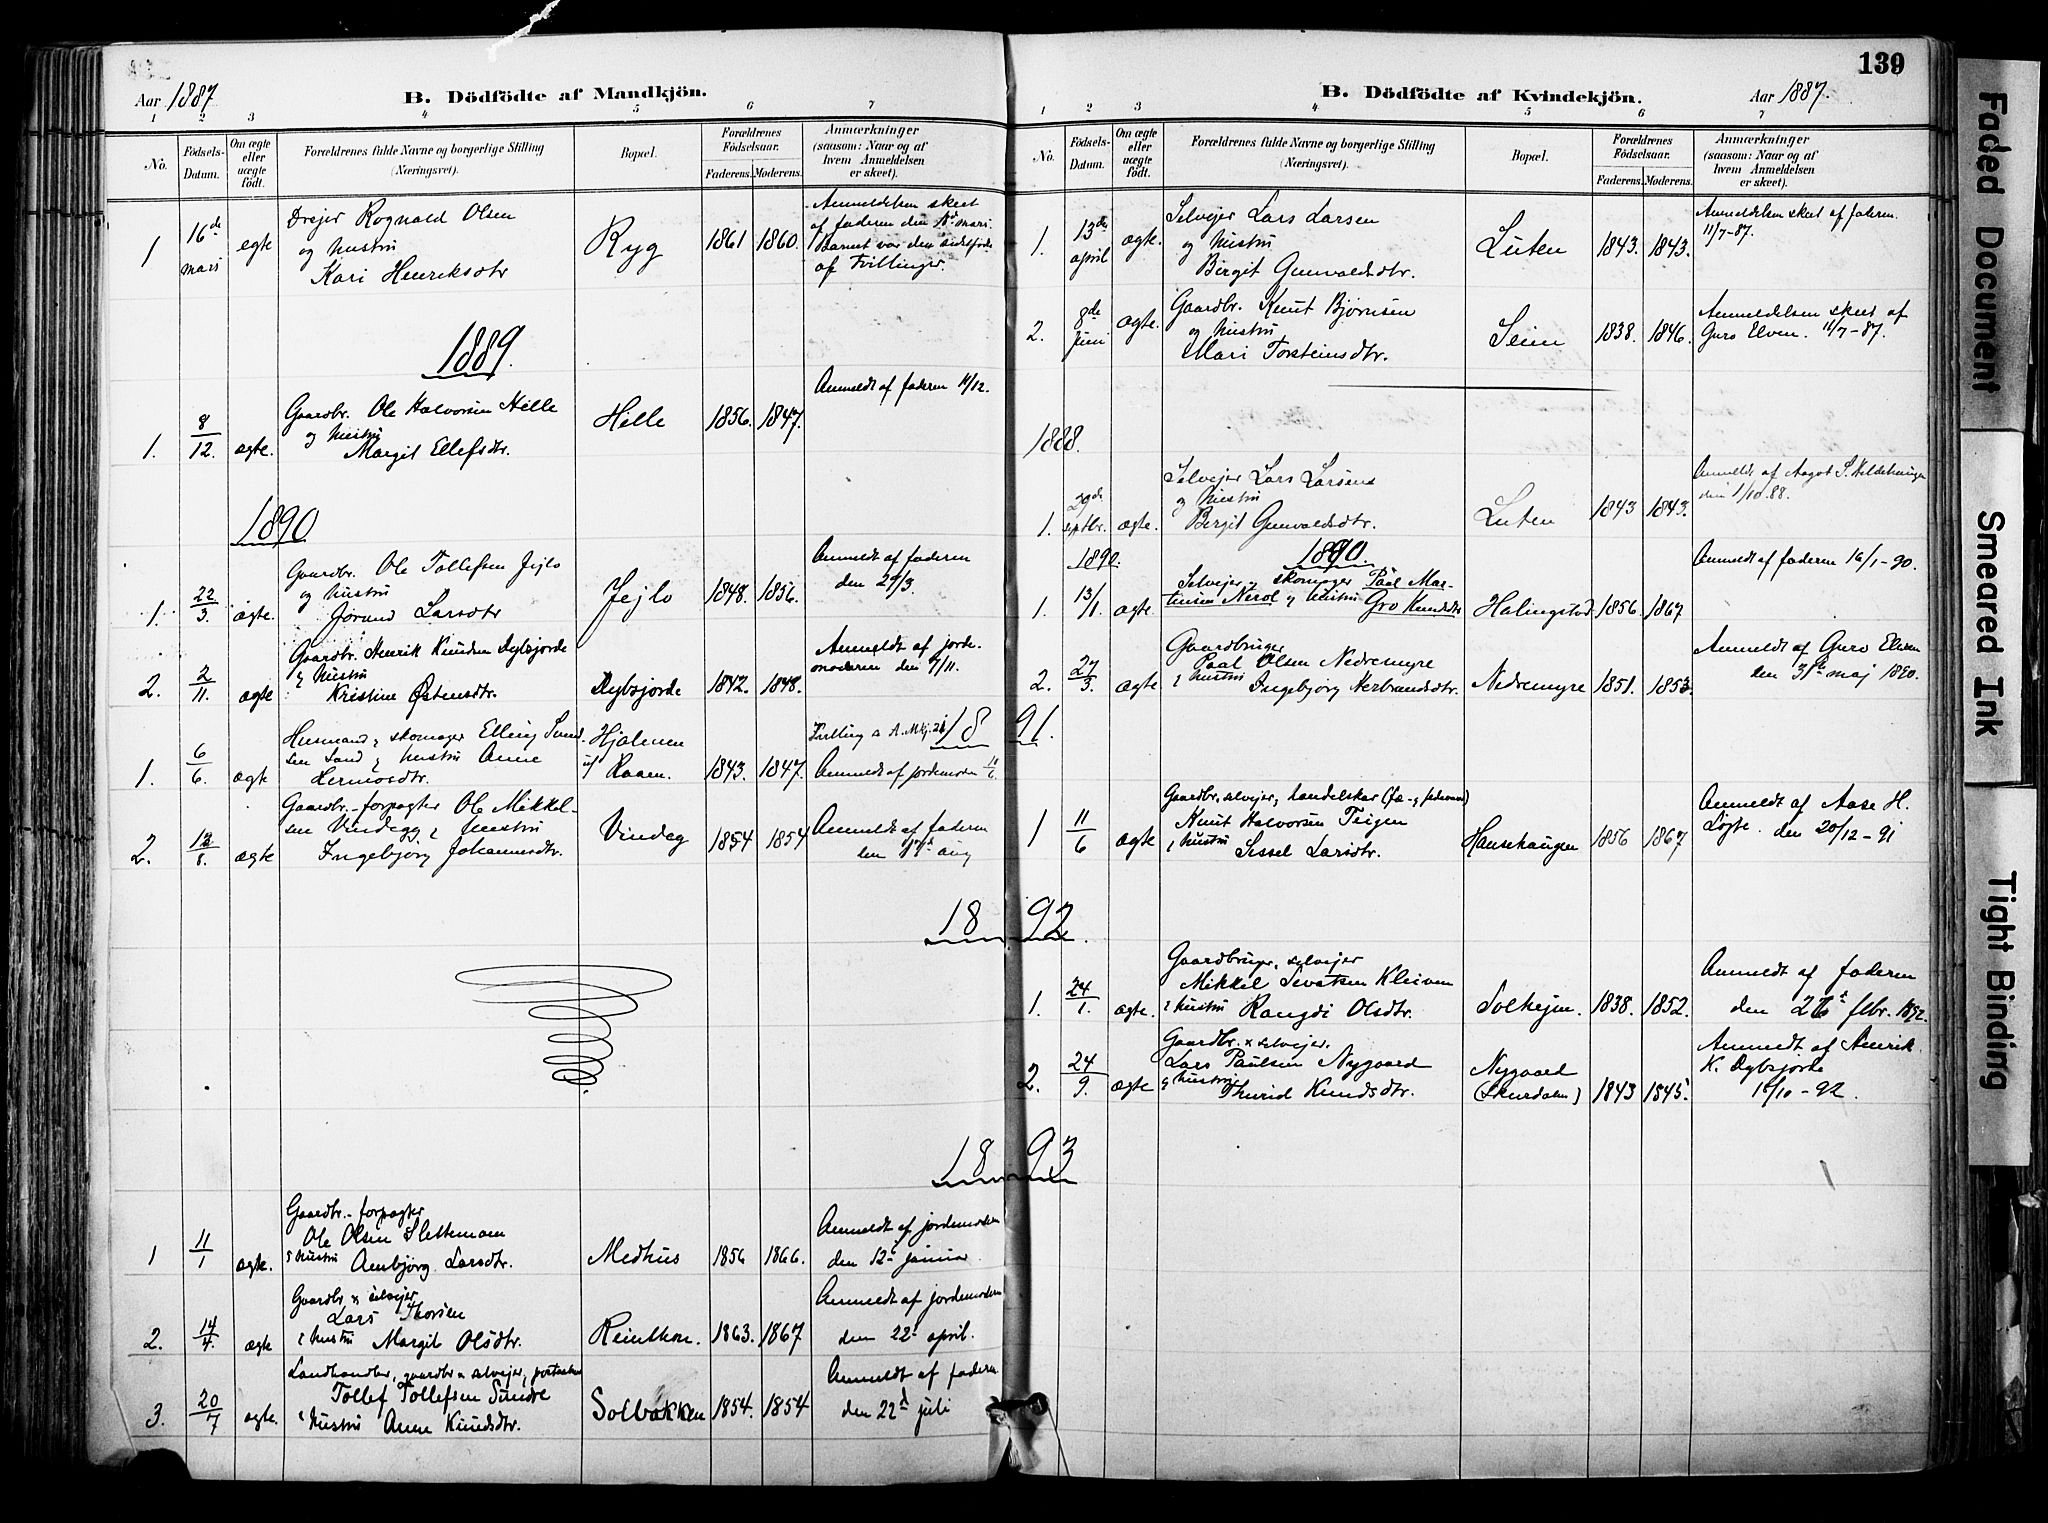 Aar 1887
B. Dödfödte af Mandkjön.
1 2 3 4 5 6 7
No.
Födsels-Datum.
Om ægte eller uægte födt.
Forældrenes fulde Navne og borgerlige Stilling (Næringsvei).
Bopæl.
Forældrenes Födselsaar.
Faderens. Moderens.
Anmærkninger (saasom: Naar og af hvem Anmeldelsen er skeet).
1 16de mars egte
Drejer Rognald Olsen
og hustru
Kari Henriksdtr
Ryg 1861 1860.
Anmeldelsen skeet
af faderen den mars.
Barnet var den sidstfødte
af Tvillinger.
1889.
1. 8/12. ægte.
Gaardbr. Ole Halvorsen Helle
og hustru
Margit Ellefsdtr.
Helle 1856. 1847.
Anmeldt af faderen 11/12.
1890
1. 22/3. ægte.
Gaardbr. Ole Tollefsen Jejlo
og hustru
Jørund Larsdtr
Jejlo 1848. 1856.
Anmeldt af faderen
den 29/3.
2. 2/11. ægte
Gaardbr. Henrik Knudsen Dybsjorde
& hustru
Kristine Østensdtr.
Dybsjorde 1842. 1848.
Anmeldt af jorde-
moderen den 9/11.
1891.
1. 6/6. ægte
Husmand & skomager Elling Svend-
sen Sand & hustru Anne
Hermosdtr.
Hjalmen
u/ Raaen. 1843. 1847.
Tvilling
Anmeldt af jordemoren 11/6.
2. 12/8. ægte
Gaardbr.-forpagter Ole Mikkel-
sen Vindegg & hustru
Ingebjørg Johannesdtr.
Vindeg 1854 1854
Anmeldt af faderen
den 17de aug
1892.
1893
1 11/1 ægte.
Gaardbr.-forpagter
Ole Olsen Slettemoen
& hustru Ambjørg Larsdtr.
Medhus 1856 1866.
Anmeldt af jordemoren
den 12te januar
2. 14/4. ægte
Gaardbr & selvejer
Lars Thorsen
& hustru Margit Olsdtr.
Reinthon. 1863. 1867
Anmeldt af jordemoderen
den 22de april.
3. 20/7 ægte.
Landhandler, gaardbr & selvejer,
Tollef Tollefsen Sundre
& hustru Anne Knudsdtr.
Solbakken 1854. 1854
Anmeldt af faderen
den 22d juli
139
B. Dödfödte af Kvindekjön.
Aar 1887.
1 2 3 4 5 6 7
No.
Födsels-Datum.
Om ægte eller uægte födt.
Forældrenes fulde Navne og borgerlige Stilling (Næringsvei).
Bopæl.
Forældrenes Födselsaar.
Faderens. Moderens.
Anmærkninger (saasom: Naar og af hvem Anmeldelsen er skeet).
1. 13de april ægte.
Selvejer Lars Larsen
og hustru
Birgit Gunvaldsdtr.
Luten 1843. 1843.
Anmeldelsen skeet af faderen.
11/7-87.
2. 8de Juni ægte.
Gaardbr. Knut Bjørnsen
og hustru
Mari Torsteinsdtr.
Seim 1838. 1846.
Anmeldelsen skeet af
Guro Elven. 11/7-87.
1888.
1. 29de septbr. ægte.
Selvejer Lars Larsens
og hustru
Birgit Gunvaldsdtr.
Luten 1843 1843.
Anmeldt af Aagot S.
den 1/10.88.
1890. 1890.
1. 13/1. ægte.
Selvejer & skomager Paal Mar-
tinsen Nerol & hustru Gro Knudsdtr
Halingstad 1856. 1867
Anmeldt af faderen 16/1-90.
2. 27/3. ægte
Gaardbruger
Paal Olsen Nedremyre
& hustru Ingebjørg Herbrandsdtr.
Nedremyre 1851. 1853.
Anmeldt af Guro Elven
den 31te maj 1890.
1 11/6 ægte
Gaardbr, selvejer, handelskar
Knut Halvorsen Teigen
& hustru Sissel Larsdtr.
Hansehaugen 1856 1867
Anmeldt af Aase H.
Løgte. den 20/12-91
1. 24/1. ægte.
Gaardbruger, selvejer
Mikkel Sevatsen Kleiven
& hustru Rangdi Olsdtr.
Solhejm. 1838. 1852.
Anmeldt af faderen
den febr. 1892.
2. 24/9. ægte
Gaardbr. & selvejer.
Lars Paulsen Nygaard
& hustru
Thurid Knudsdtr.
Nygaard
(Skurdalen) 1843 1845.
Anmeldt af Henrik
K. Dybsjorde
18/10-92.
Faded Document
Smeared Ink
Tight Binding